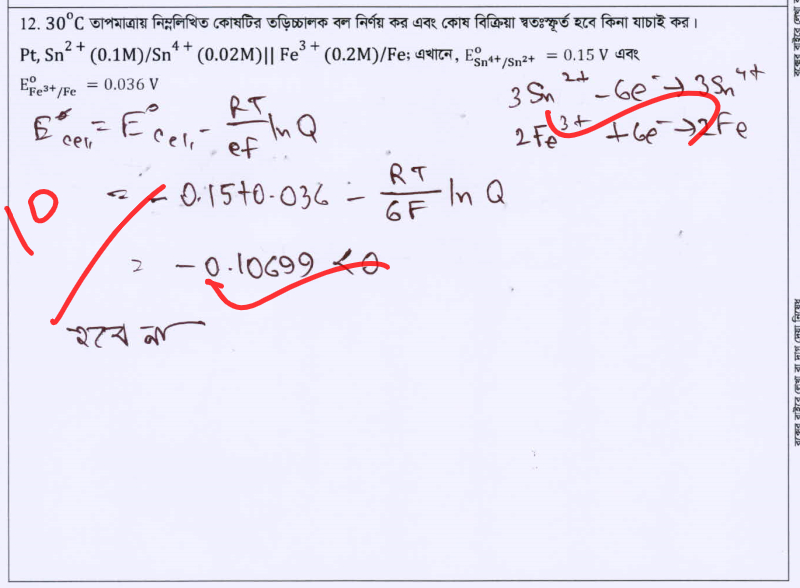 12. 30°C তাপমাত্রায় নিম্নলিখিত কোষটির তড়িচ্চালক বল নির্ণয় কর এবং কোষ বিক্রিয়া স্বতঃস্ফূর্ত হবে কিনা যাচাই কর।
Pt, Sn²⁺ (0.1M)/Sn⁴⁺ (0.02M)|| Fe³⁺ (0.2M)/Fe; এখানে, E°Sn⁴⁺/Sn²⁺ = 0.15 V এবং
E°Fe³⁺/Fe = 0.036 V
3Sn²⁺ - 6e⁻ → 3Sn⁴⁺
2Fe³⁺ + 6e⁻ → 2Fe
E°cell = E°cell - RT/eF ln Q
= - 0.15+0.036 - RT/6F ln Q
10
= - 0.10699 < 0
হবে না